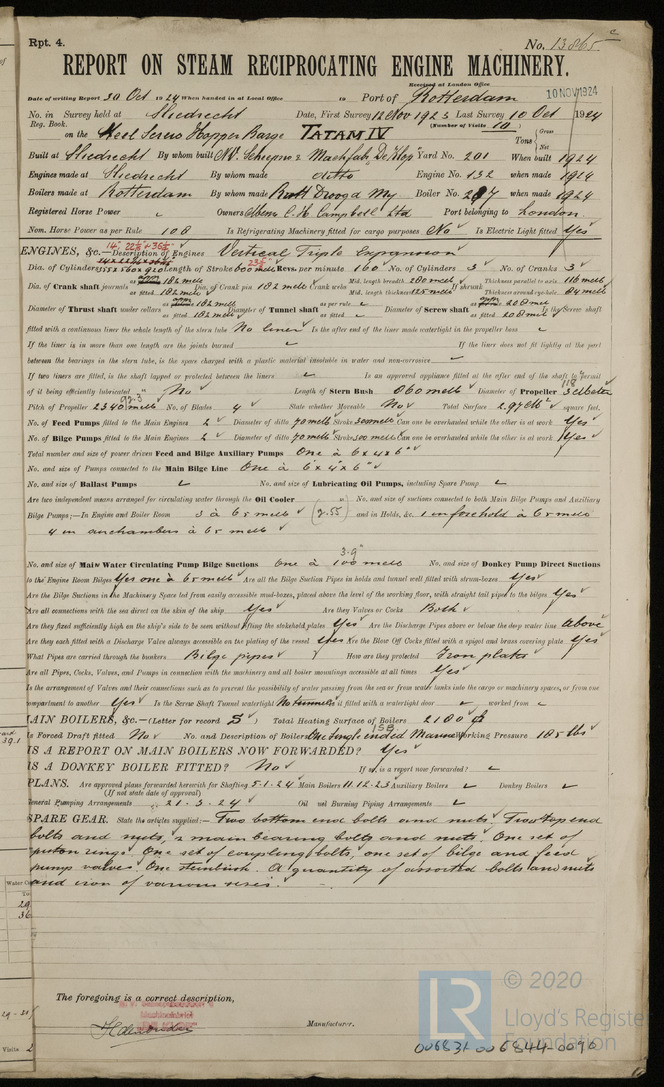 Rpt. 4.
No. 13865
REPORT ON STEAM RECIPROCATING ENGINE MACHINERY.
Received at London Office
10 NOV 1924
Date of writing Report 30 Oct 1924 When handed in at Local Office 19 Port of Rotterdam
No. in Survey held at Sliedrecht Date, First Survey 12 Nov 1923 Last Survey 10 Oct 1924
Reg. Book. (Number of Visits 10)
on the Steel Screw Hopper Barge TATAM IV Tons Gross Net
Built at Sliedrecht By whom built NV. Scheepsw & Machfab De Hop Yard No. 201 When built 1924
Engines made at Sliedrecht By whom made ditto Engine No. 132 when made 1924
Boilers made at Rotterdam By whom made Rott Droogd My Boiler No. when made 1924
Registered Horse Power Owners C. H. Campbell Ltd Port belonging to London
Nom. Horse Power as per Rule 108 Is Refrigerating Machinery fitted for cargo purposes No Is Electric Light fitted Yes
ENGINES, &c.—Description of Engines Vertical Triple Expansion
Dia. of Cylinders 355x560x920 Length of Stroke 600 mells Revs. per minute 160 No. of Cylinders 3 No. of Cranks 3
Dia. of Crank shaft journals as fitted 182 mells Dia. of Crank pin 182 mells Crank webs Mid. length breadth 280 mells Thickness parallel to axis 116 mells
Mid. length thickness 125 mells If shrunk Thickness around eye-hole 84 mells
Diameter of Thrust shaft under collars as fitted 182 mells Diameter of Tunnel shaft as per rule as fitted Diameter of Screw shaft as fitted 208 mells Is the Screw shaft
fitted with a continuous liner the whole length of the stern tube No liner Is the after end of the liner made watertight in the propeller boss
If the liner is in more than one length are the joints burned If the liner does not fit tightly at the part
between the bearings in the stern tube, is the space charged with a plastic material insoluble in water and non-corrosive
If two liners are fitted, is the shaft lapped or protected between the liners Is an approved appliance fitted at the after end of the shaft to permit
of it being efficiently lubricated No Length of Stern Bush 860 mells Diameter of Propeller
Pitch of Propeller 2340 mells No. of Blades 4 State whether Moveable No Total Surface 2.97 square feet.
No. of Feed Pumps fitted to the Main Engines 2 Diameter of ditto 70 mells Stroke 300 mells Can one be overhauled while the other is at work Yes
No. of Bilge Pumps fitted to the Main Engines 2 Diameter of ditto 70 mells Stroke 300 mells Can one be overhauled while the other is at work Yes
Total number and size of power driven Feed and Bilge Auxiliary Pumps One à 6 x 4 x 6"
No. and size of Pumps connected to the Main Bilge Line One à 6" x 4" x 6"
No. and size of Ballast Pumps No. and size of Lubricating Oil Pumps, including Spare Pump
Are two independent means arranged for circulating water through the Oil Cooler No. and size of suctions connected to both Main Bilge Pumps and Auxiliary
Bilge Pumps;—In Engine and Boiler Room 3 à 65 mells (2.55) and in Holds, &c. 1 in forehold à 65 mells
4 in airchambers à 65 mells
No. and size of Main Water Circulating Pump Bilge Suctions One à 100 mells No. and size of Donkey Pump Direct Suctions
to the Engine Room Bilges Yes one à 65 mells Are all the Bilge Suction Pipes in holds and tunnel well fitted with strum-boxes Yes
Are the Bilge Suctions in the Machinery Space led from easily accessible mud-boxes, placed above the level of the working floor, with straight tail pipes to the bilges Yes
Are all connections with the sea direct on the skin of the ship Yes Are they Valves or Cocks Both
Are they fixed sufficiently high on the ship's side to be seen without lifting the stokehold plates Yes Are the Discharge Pipes above or below the deep water line above
Are they each fitted with a Discharge Valve always accessible on the plating of the vessel Yes Are the Blow Off Cocks fitted with a spigot and brass covering plate Yes
What Pipes are carried through the bunkers Bilge pipes How are they protected Iron plates
Are all Pipes, Cocks, Valves, and Pumps in connection with the machinery and all boiler mountings accessible at all times Yes
Is the arrangement of Valves and their connections such as to prevent the possibility of water passing from the sea or from water tanks into the cargo or machinery spaces, or from one
compartment to another Yes Is the Screw Shaft Tunnel watertight No tunnel Is it fitted with a watertight door worked from
MAIN BOILERS, &c.—(Letter for record S) Total Heating Surface of Boilers 2100
Is Forced Draft fitted No No. and Description of Boilers One single ended Marine Working Pressure 185 lbs
IS A REPORT ON MAIN BOILERS NOW FORWARDED? Yes
IS A DONKEY BOILER FITTED? No If so, is a report now forwarded?
PLANS. Are approved plans forwarded herewith for Shafting 5-1-24 Main Boilers 11.12.23 Auxiliary Boilers Donkey Boilers
(If not state date of approval)
General Pumping Arrangements 21.3.24 Oil Fuel Burning Piping Arrangements
SPARE GEAR. State the articles supplied:— Two bottom end bolts and nuts. Two top end
bolts and nuts, 2 main bearing bolts and nuts. One set of
piston rings. One set of coupling bolts, one set of bilge and feed
pump valves. One sternbush. A quantity of assorted bolts and nuts
and iron of various sizes.
The foregoing is a correct description,
Manufacturer.
© 2020
LR
Lloyd's Register
Foundation
006831-006844-0090